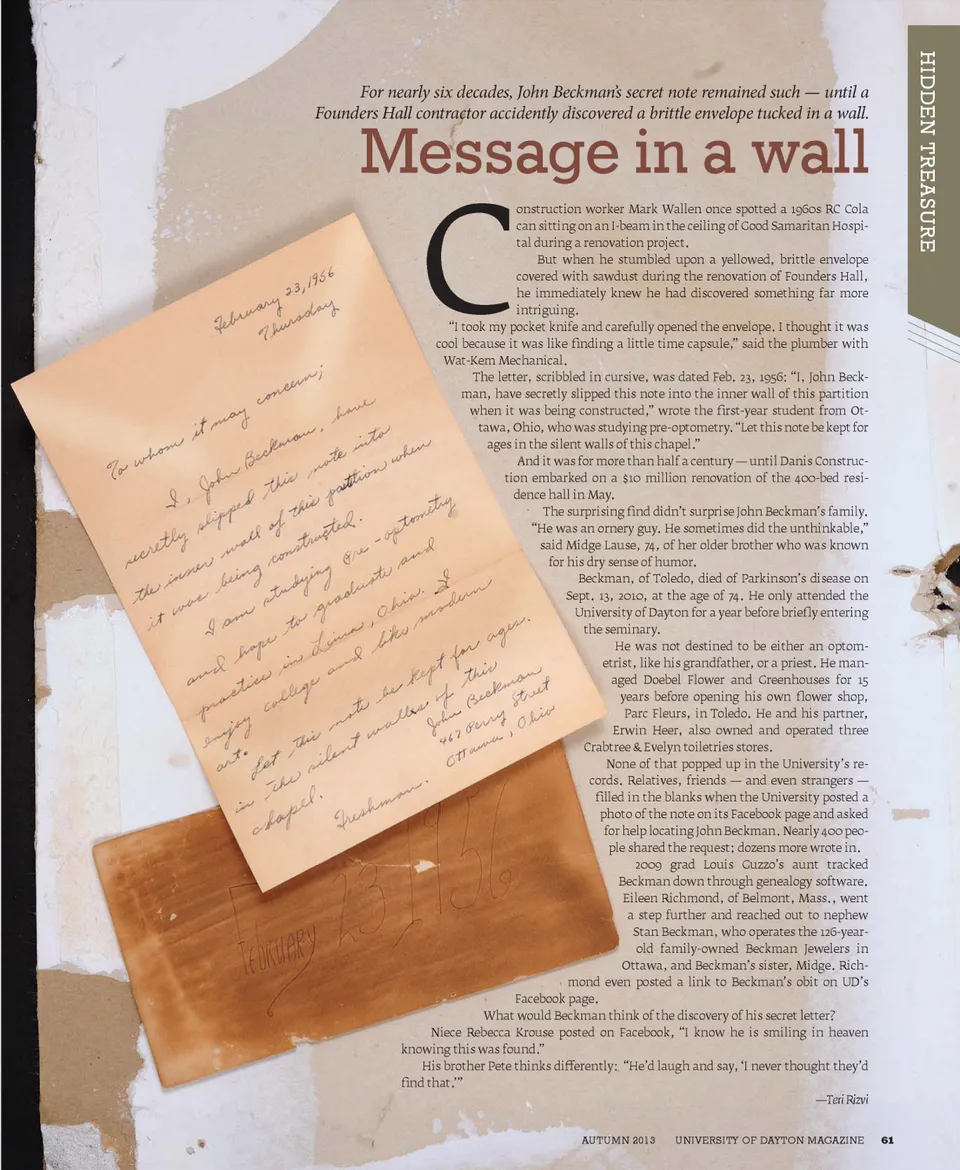 HIDDEN TREASURE
For nearly six decades, John Beckman's secret note remained such — until a
Founders Hall contractor accidently discovered a brittle envelope tucked in a wall.
Message in a wall
Construction worker Mark Wallen once spotted a 1960s RC Cola
can sitting on an I-beam in the ceiling of Good Samaritan Hospi-
tal during a renovation project.
But when he stumbled upon a yellowed, brittle envelope
covered with sawdust during the renovation of Founders Hall,
he immediately knew he had discovered something far more
intriguing.
“I took my pocket knife and carefully opened the envelope. I thought it was
cool because it was like finding a little time capsule,” said the plumber with
Wat-Kem Mechanical.
The letter, scribbled in cursive, was dated Feb. 23, 1956: “I, John Beck-
man, have secretly slipped this note into the inner wall of this partition
when it was being constructed,” wrote the first-year student from Ot-
tawa, Ohio, who was studying pre-optometry. “Let this note be kept for
ages in the silent walls of this chapel.”
And it was for more than half a century — until Danis Construc-
tion embarked on a $10 million renovation of the 400-bed resi-
dence hall in May.
The surprising find didn't surprise John Beckman's family.
“He was an ornery guy. He sometimes did the unthinkable,”
said Midge Lause, 74, of her older brother who was known
for his dry sense of humor.
Beckman, of Toledo, died of Parkinson's disease on
Sept. 13, 2010, at the age of 74. He only attended the
University of Dayton for a year before briefly entering
the seminary.
He was not destined to be either an optom-
etrist, like his grandfather, or a priest. He man-
aged Doebel Flower and Greenhouses for 15
years before opening his own flower shop,
Parc Fleurs, in Toledo. He and his partner,
Erwin Heer, also owned and operated three
Crabtree & Evelyn toiletries stores.
None of that popped up in the University's re-
cords. Relatives, friends — and even strangers —
filled in the blanks when the University posted a
photo of the note on its Facebook page and asked
for help locating John Beckman. Nearly 400 peo-
ple shared the request; dozens more wrote in.
2009 grad Louis Guzzo's aunt tracked
Beckman down through genealogy software.
Eileen Richmond, of Belmont, Mass., went
a step further and reached out to nephew
Stan Beckman, who operates the 126-year-
old family-owned Beckman Jewelers in
Ottawa, and Beckman's sister, Midge. Rich-
mond even posted a link to Beckman's obit on UD's
Facebook page.
What would Beckman think of the discovery of his secret letter?
Niece Rebecca Krouse posted on Facebook, “I know he is smiling in heaven
knowing this was found.”
His brother Pete thinks differently: “He'd laugh and say, ‘I never thought they'd
find that.’”
—Teri Rizvi
February 23, 1956
Thursday
To whom it may concern;
I, John Beckman, have
secretly slipped this note into
the inner wall of this partition when
it was being constructed.
I am studying pre-optometry
and hope to graduate and
practise in Lima, Ohio. I
enjoy college and like modern
art.
Let this note be kept for ages.
in the silent walls of this
chapel.
John Beckman
467 Perry Street
Ottawa, Ohio
Freshman.
FEBRUARY 23 1956
AUTUMN 2013 UNIVERSITY OF DAYTON MAGAZINE 61